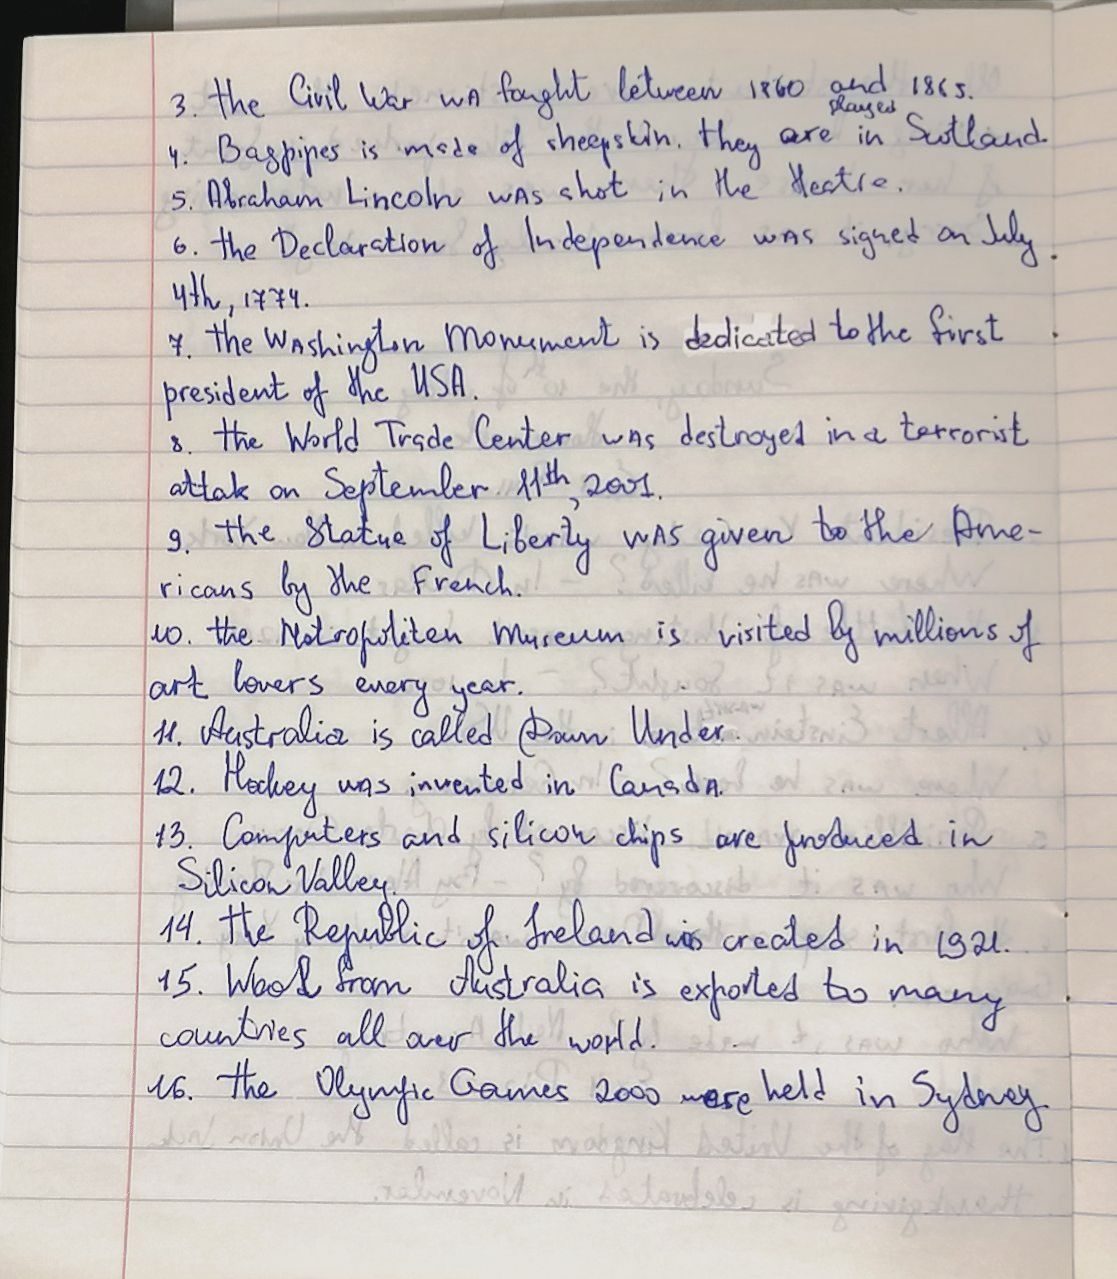 3. the Civil War wA fought between 1860 and 1865.
played
4. Bagpipes is made of sheepskin. they are in Scotland.
5. Abraham Lincoln was shot in the theatre.
6. the Declaration of Independence was signed on July
4th, 1774.
7. the Washington Monument is dedicated to the first
president of the USA.
8. the World Trade Center was destroyed in a terrorist
attak on September 11th, 2001.
9. the Statue of Liberty was given to the Ame-
ricans by the French.
10. the Metropoliten Museum is visited by millions of
art lovers every year.
11. Australia is called Down Under.
12. Hockey was invented in Canada.
13. Computers and silicon chips are produced in
Silicon Valley.
14. the Republic of Ireland was created in 1921.
15. Wool from Australia is exported to many
countries all over the world.
16. the Olympic Games 2000 were held in Sydney